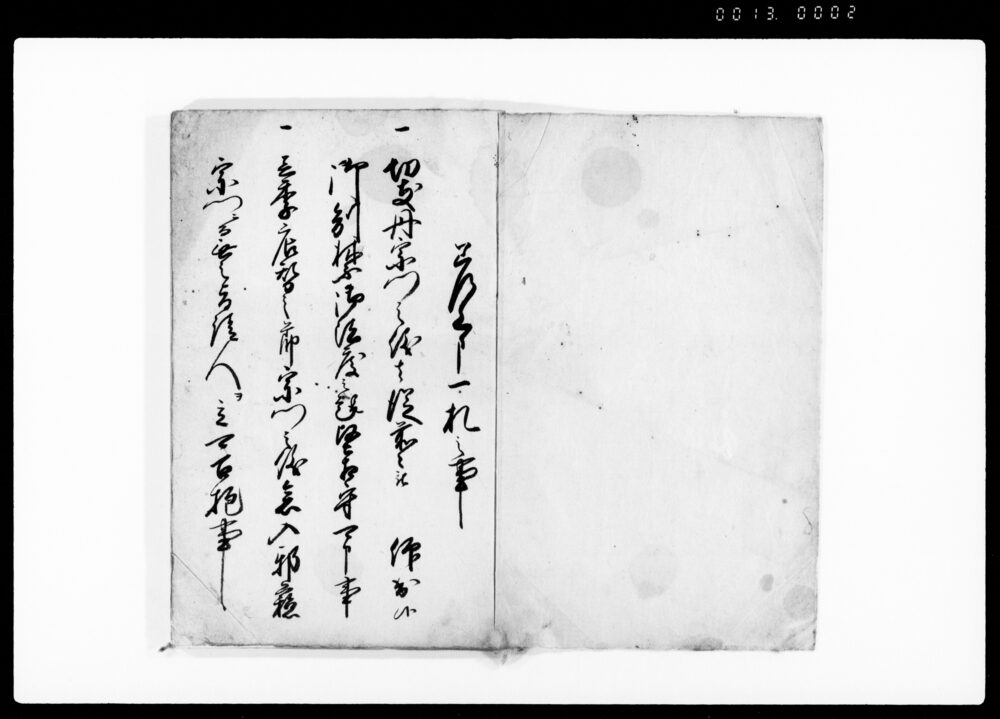 0013. 0002
差上ケ申一札之事
一 切支丹宗門之儀者従前々被 仰出候
御制禁御法度之趣堅相守可申事
一 季居替之節宗門之儀念入邪蘇
宗門ニ無之者請人ヲ立可召抱事